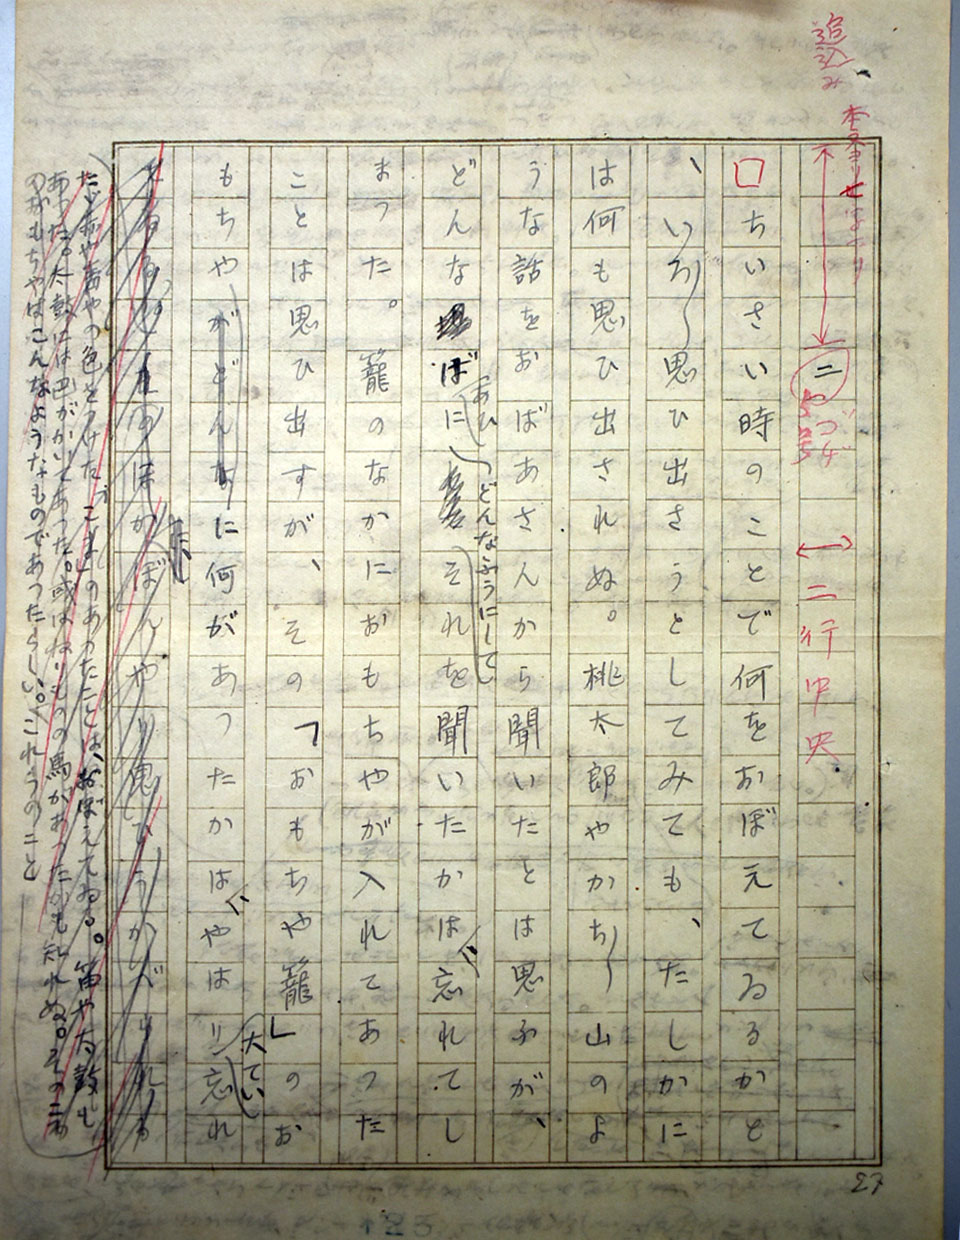 追込み
二
二行中央
ちいさい時のことで何をおぼえてゐるかと
、いろ〳〵思ひ出さうとしてみても、たしかに
は何も思ひ出されぬ。桃太郎やかち〳〵山のよ
うな話をおばあさんから聞いたとは思ふが、
どんなばあひにどんなふうにしてそれを聞いたかは忘れてし
まつた。籠のなかにおもちやが入れてあつた
ことは思ひ出すが、その「おもちや籠」のお
もちやがどんなに何があつたかはやはり大てい忘れ
ぼんやり思ひうかべられる
たゞ赤や黄やの色をつけたこまのあつたことは、おぼえてゐる。笛や太鼓も
あつた。太鼓には巴がかいてあつた。或はねりものの馬があつたかも知れぬ。その二ゐ
のおもちやはこんなようなものであつたらしい。これらのこと
27